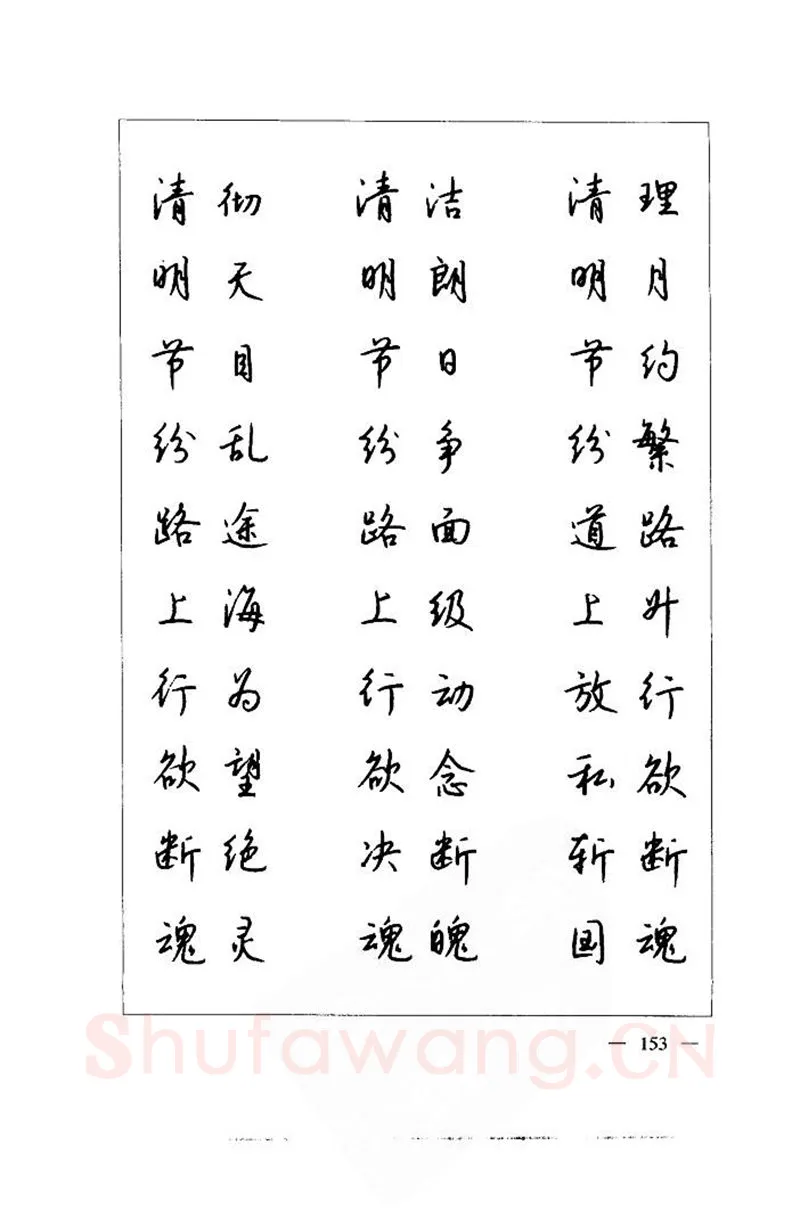 清彻 清洁 清理
明天 明朗 明月
节目 节日 节约
纷乱 纷争 纷繁
路途 路面 道路
上海 上级 上升
行为 行动 放行
欲望 欲念 私欲
断绝 决断 斩断
魂灵 魂魄 国魂
— 153 —
Shufawang.CN